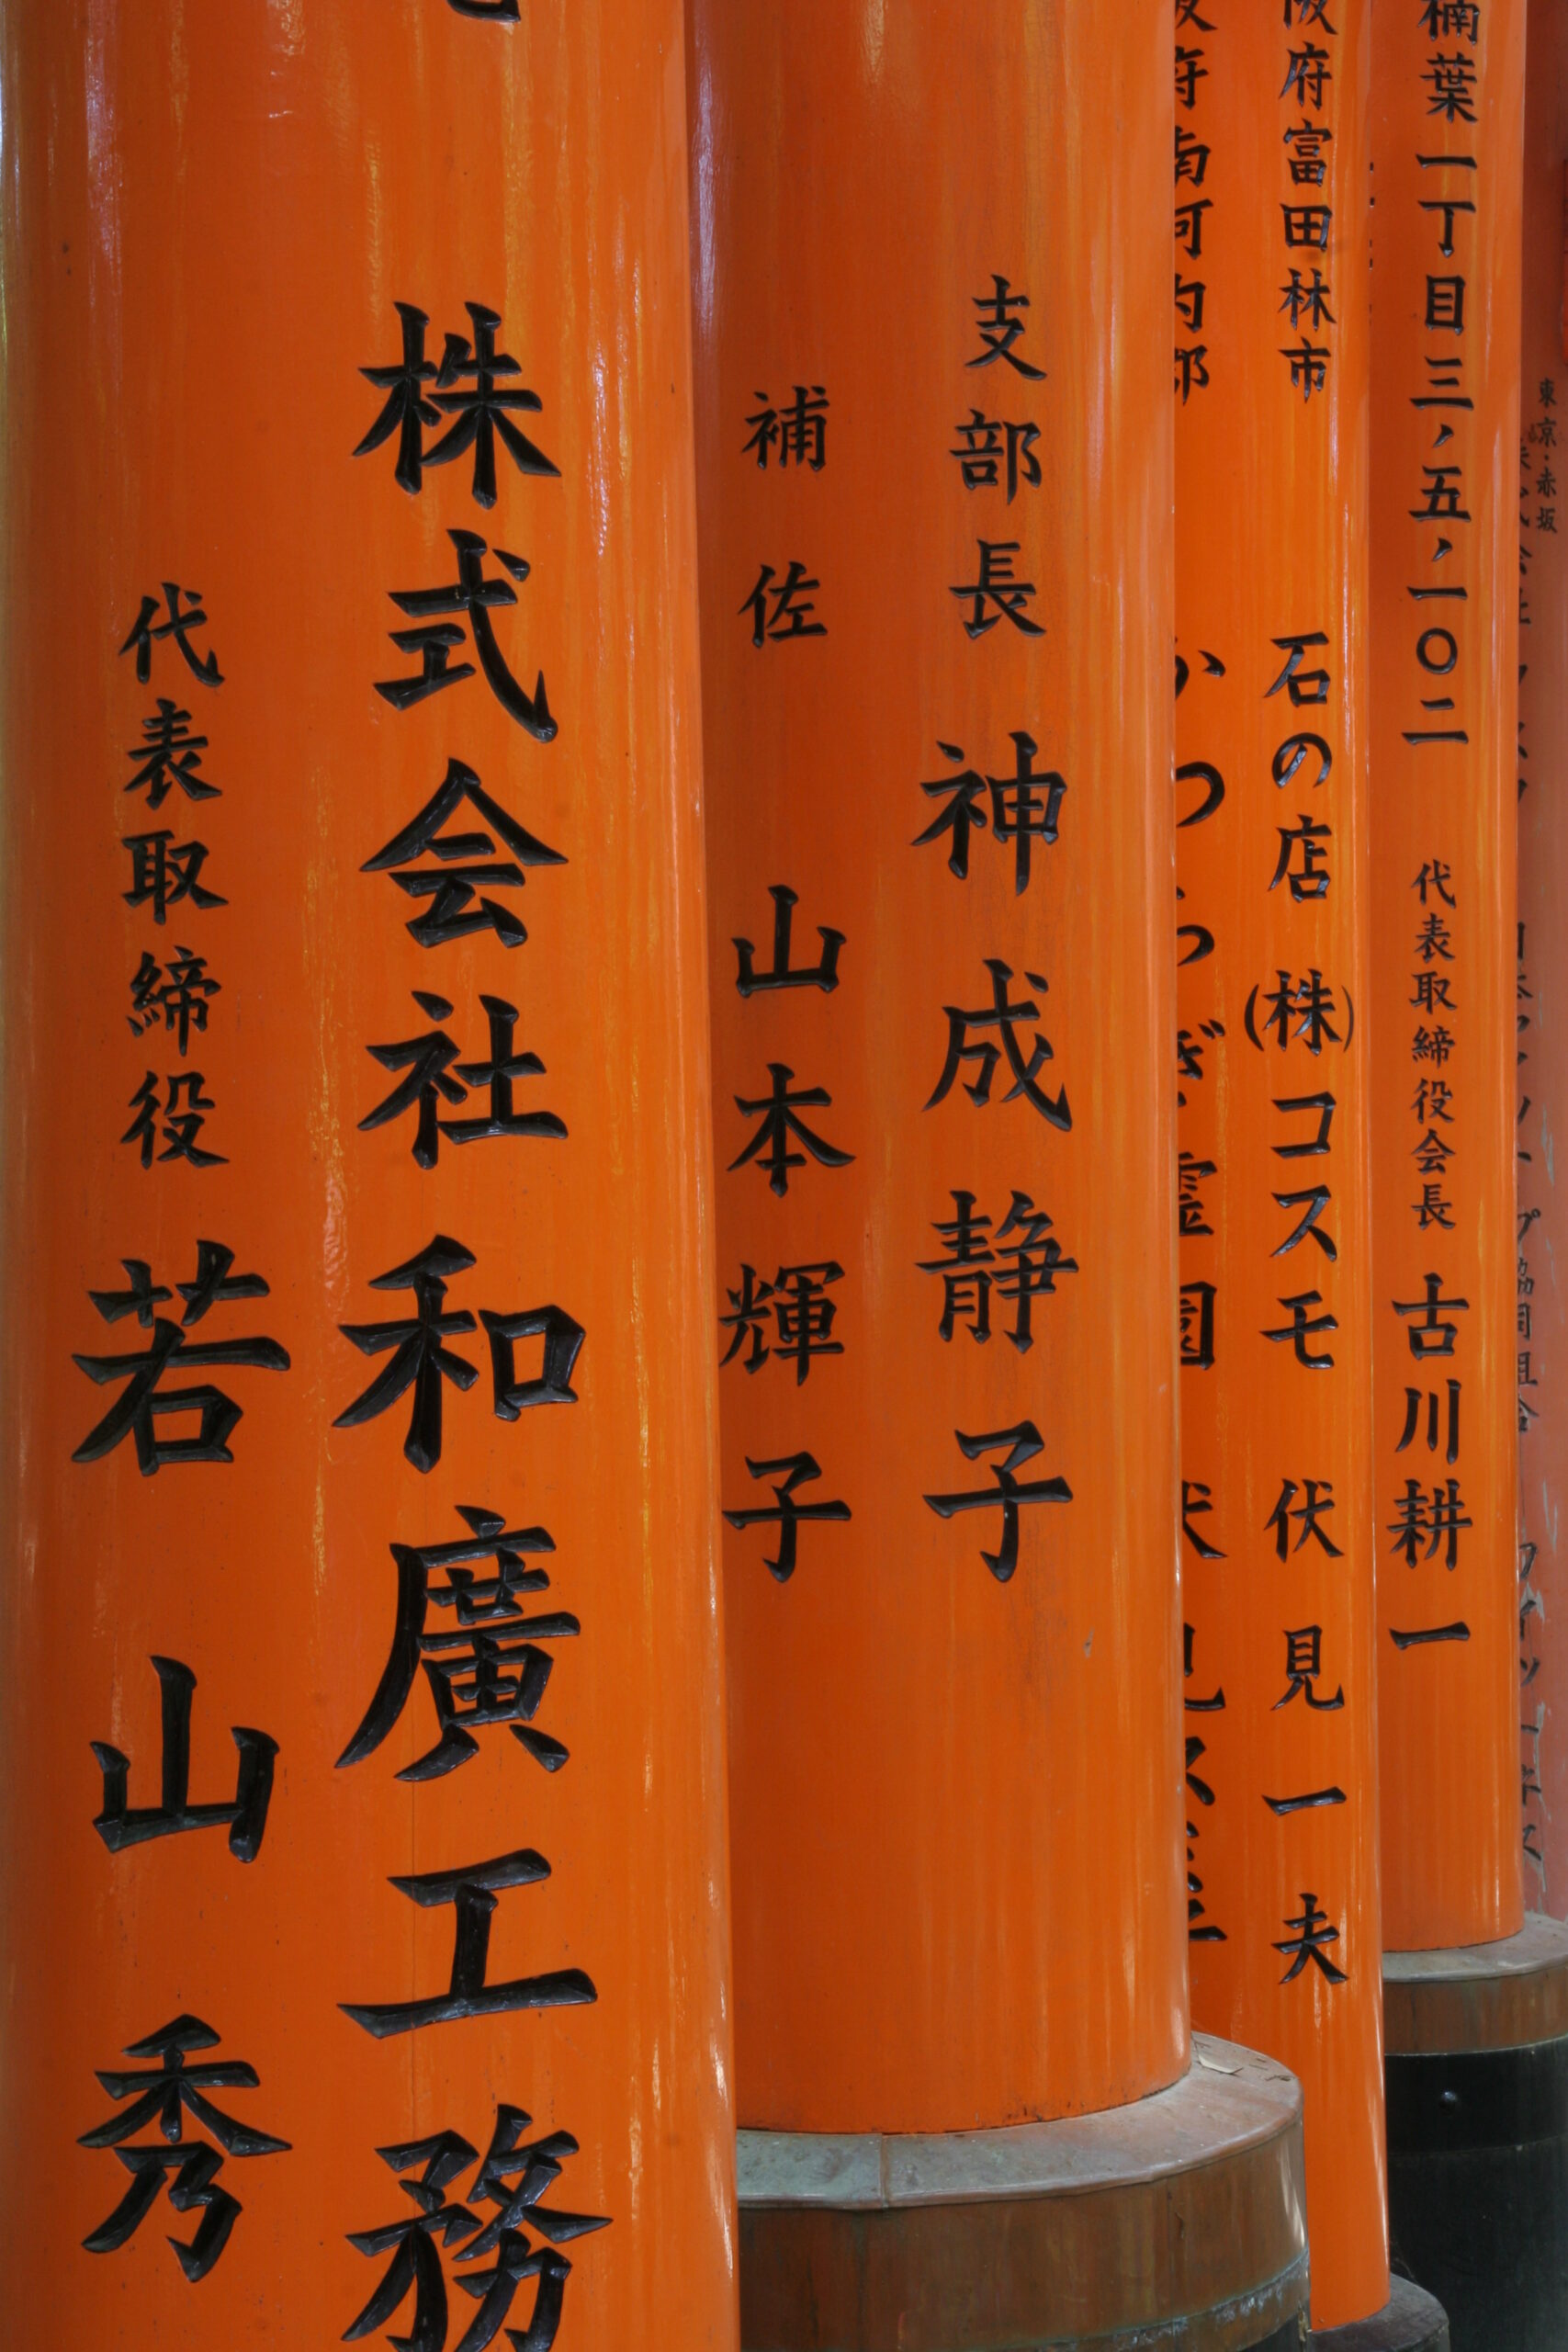 株式会社和廣工務
代表取締役 若山秀
支部長 神成静子
補佐 山本輝子
府南河内郡 かつらぎ霊園 伏見
阪府富田林市 石の店(株)コスモ 伏見一夫
楠葉一丁目三、五、一〇二 代表取締役会長 古川耕一
東京・赤坂
協同組合